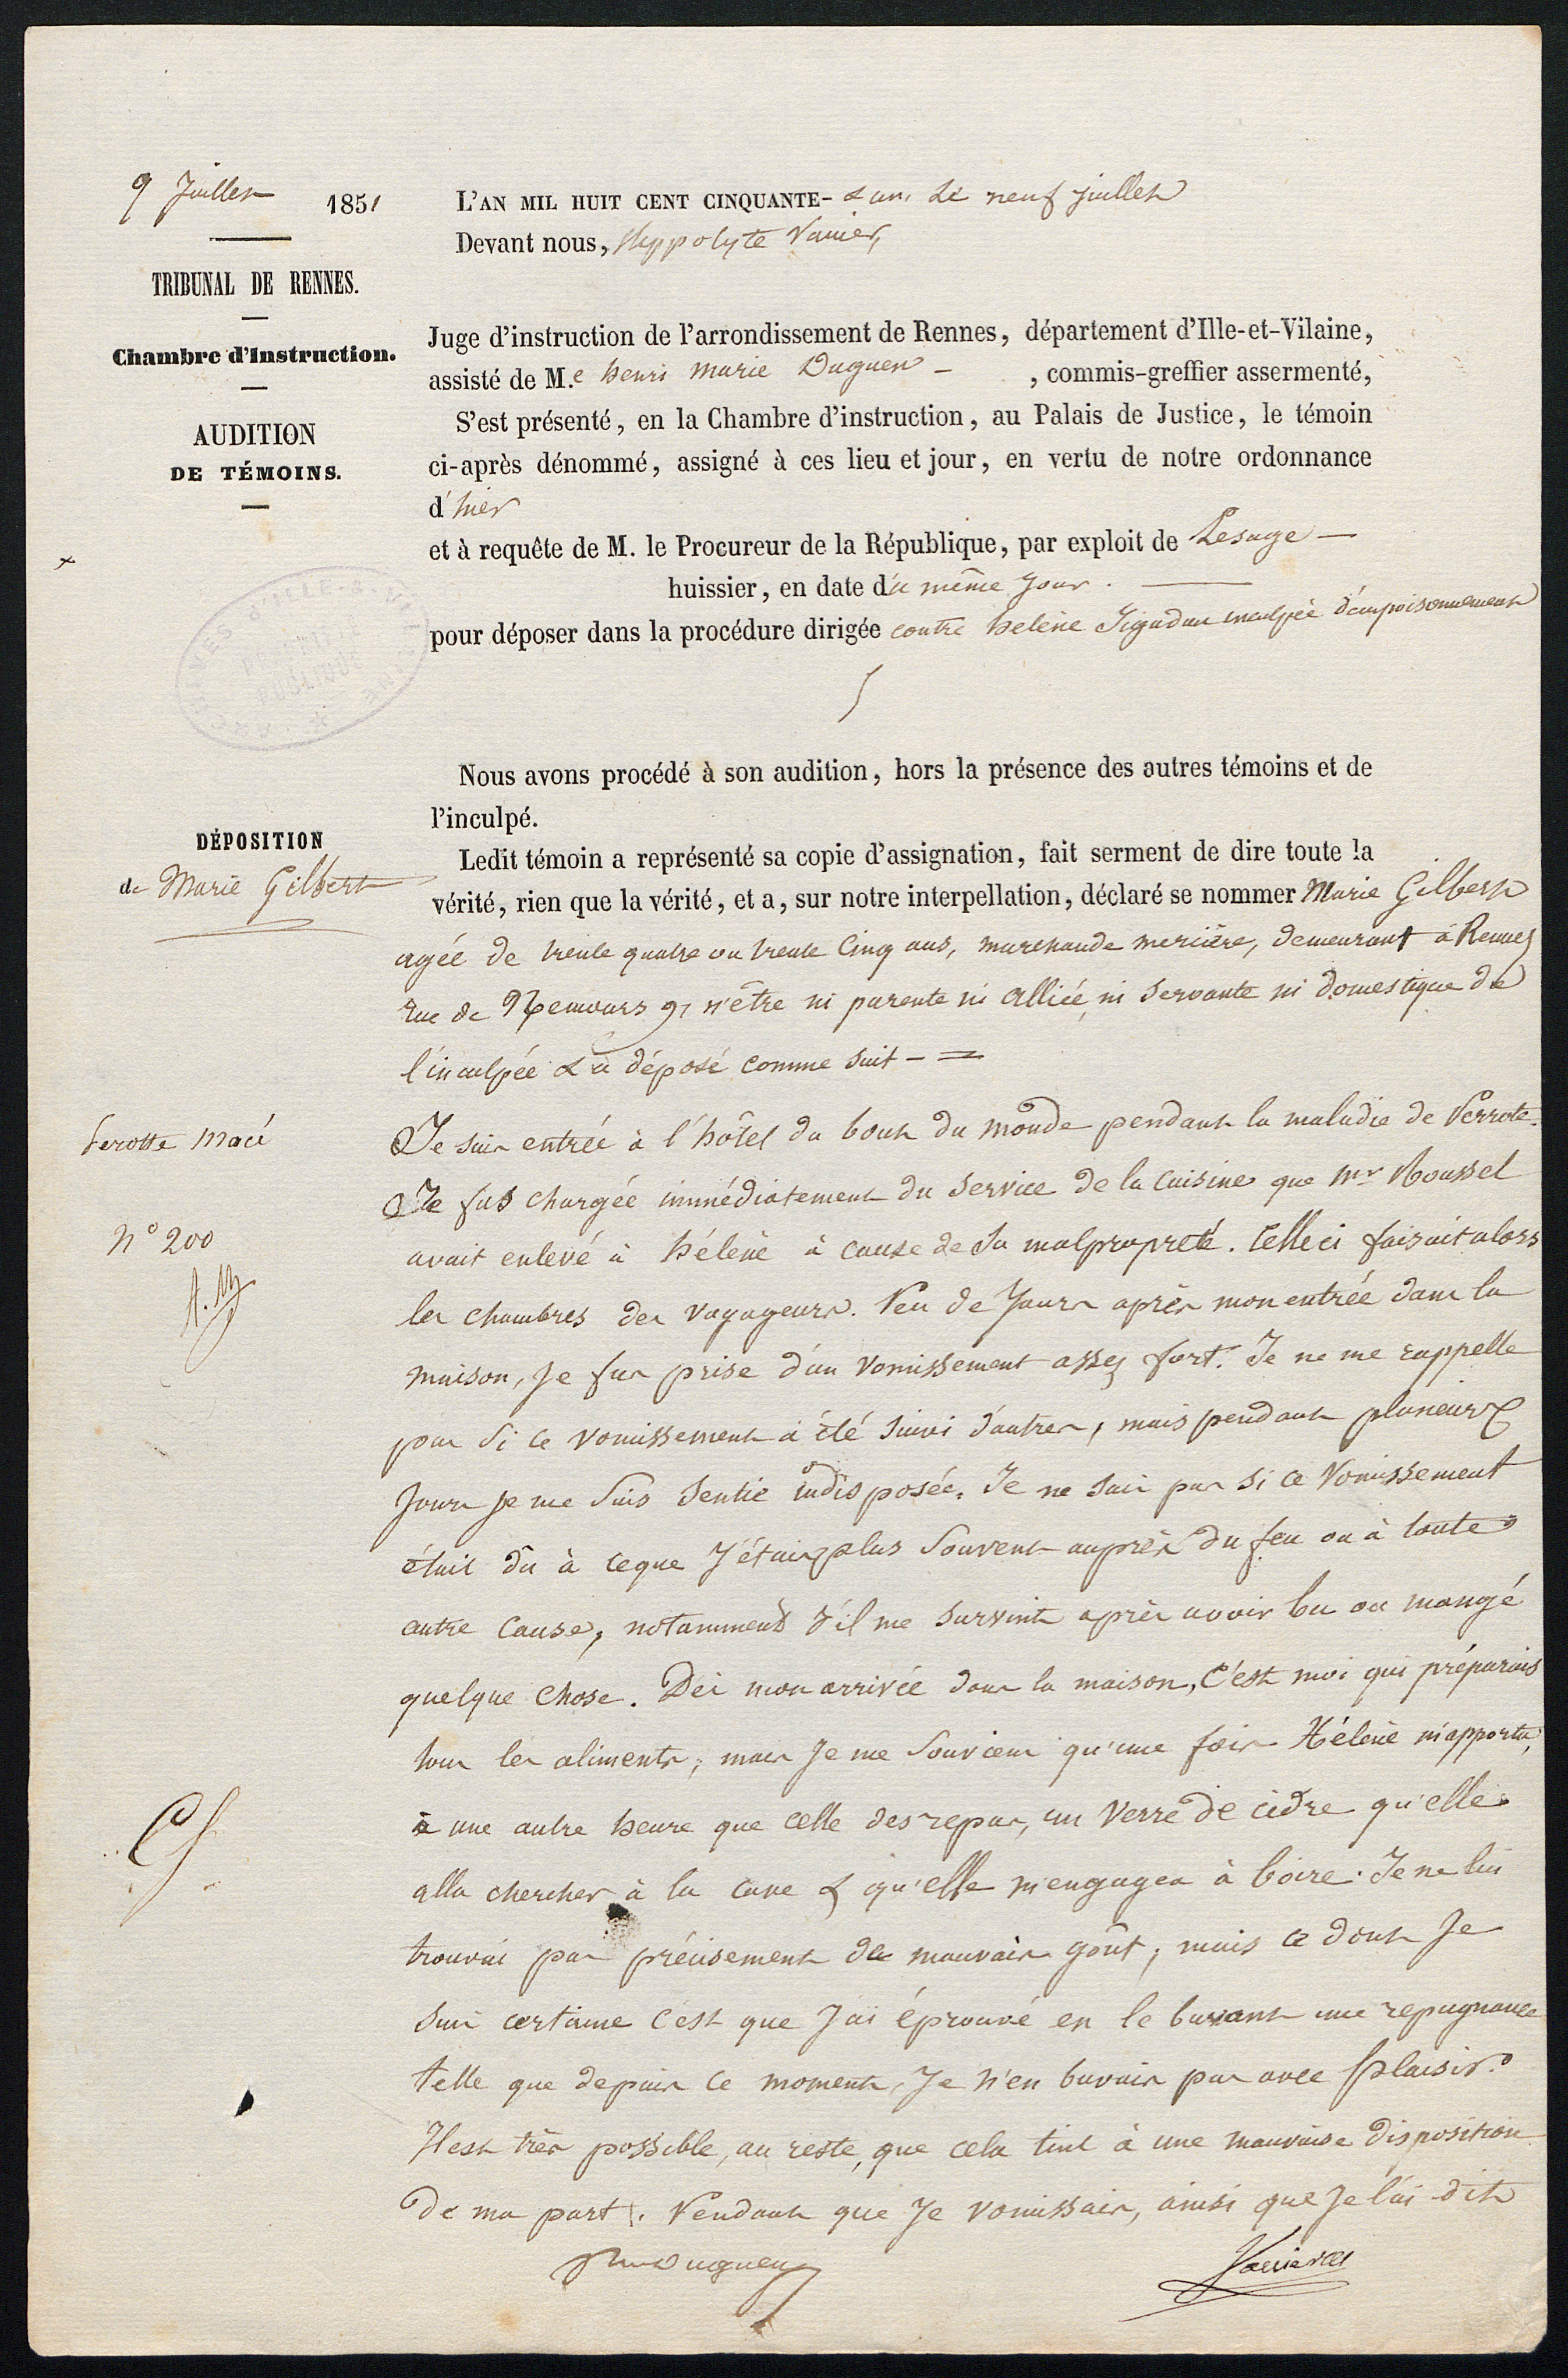 9 Juillet 1851
TRIBUNAL DE RENNES.
Chambre d'Instruction.
AUDITION
DE TÉMOINS.
L'AN MIL HUIT CENT CINQUANTE- & un, Le neuf juillet
Devant nous, Hyppolyte Vanier,
Juge d'instruction de l'arrondissement de Rennes, département d'Ille-et-Vilaine,
assisté de M.e henri Marie Duguen - , commis-greffier assermenté,
S'est présenté, en la Chambre d'instruction, au Palais de Justice, le témoin
ci-après dénommé, assigné à ces lieu et jour, en vertu de notre ordonnance
d'hier
et à requête de M. le Procureur de la République, par exploit de Lesage —
huissier, en date du même Jour. —
pour déposer dans la procédure dirigée contre heléne Jigadau inculpée d'empoisonnement
Nous avons procédé à son audition, hors la présence des autres témoins et de
l'inculpé.
DÉPOSITION
de Marie Gilbert
Ledit témoin a représenté sa copie d'assignation, fait serment de dire toute la
vérité, rien que la vérité, et a, sur notre interpellation, déclaré se nommer Marie Gilbert
agée de trente quatre ou trente Cinq ans, marchande mercière, demeurant à Rennes
rue de Nemours 9, n'être ni parente ni alliée, ni Servante ni domestique de
l'inculpée & a déposé comme suit - =
Perotte Macé
Je suis entrée à l'hôtel du bout du monde pendant la maladie de Perrote.
Je fus chargée immédiatement du Service de la Cuisine que Mr Roussel
N° 200
avait enlevé à hélène à cause de sa malpropreté. Celle ci faisait alors
les chambres des voyageurs. Peu de Jours après mon entrée dans la
maison, Je fus prise d'un vomissement assez fort. Je ne me rappelle
pas Si ce vomissement a été suivi d'autres, mais pendant plusieurs
Jours je me suis sentie indisposée. Je ne sais pas si ce vomissement
était dû à ce que J'étais plus souvent auprès du feu ou à toute
autre cause, notamment s'il me survint après avoir bu ou mangé
quelque chose. Dès mon arrivée dans la maison, C'est moi qui préparais
tous les aliments; mais Je me souviens qu'une fois Hélène m'apporta,
à une autre heure que celle des repas, un verre de cidre qu'elle
alla chercher à la cave & qu'elle m'engagea à boire. Je ne lui
trouvai pas précisément de mauvais goût, mais ce dont Je
suis certaine c'est que J'ai éprouvé en le buvant une repugnance
telle que depuis ce moment, Je n'en buvais pas avec plaisir.
Il est très possible, au reste, que cela tint à une mauvaise disposition
de ma part. Pendant que Je vomissais, ainsi que Je l'ai dit
Duguen